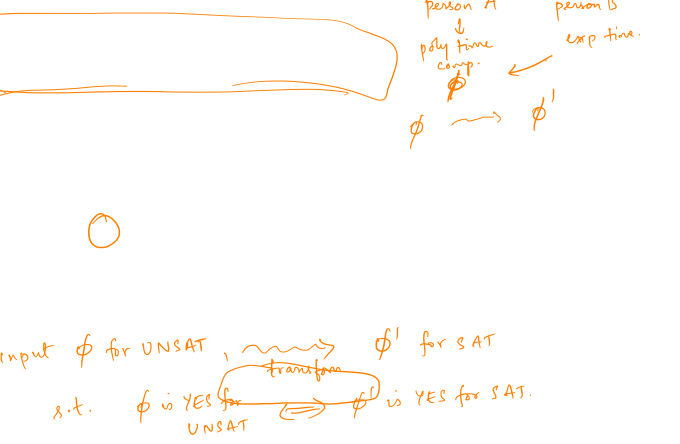 person A
person B
↓
poly time
comp.
exp time.
ϕ
ϕ ⟿ ϕ'
input ϕ for UNSAT, ⟿ ϕ' for SAT
transform
s.t. ϕ is YES for UNSAT ⟺ ϕ' is YES for SAT.